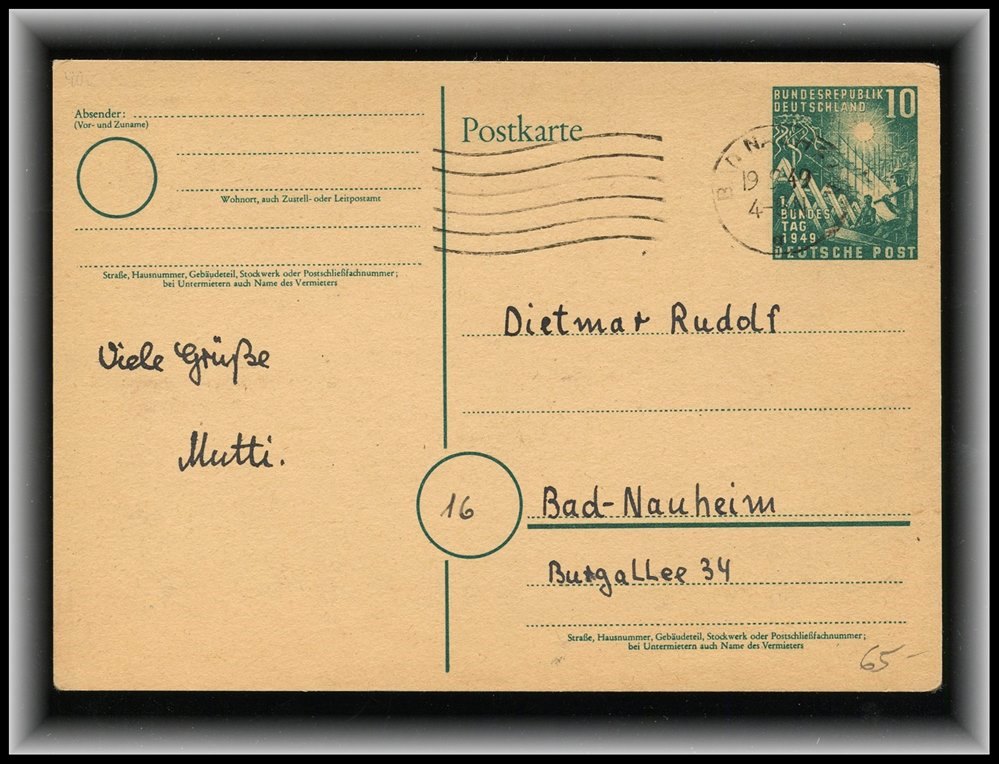 Absender:
(Vor- und Zuname)
Wohnort, auch Zustell- oder Leitpostamt
Straße, Hausnummer, Gebäudeteil, Stockwerk oder Postschließfachnummer;
bei Untermietern auch Name des Vermieters
Viele Grüße
Mutti.
Postkarte
BUNDESREPUBLIK 10
DEUTSCHLAND
BUNDES
TAG
1949
DEUTSCHE POST
Dietmar Rudolf
16
Bad-Nauheim
Burgallee 34
Straße, Hausnummer, Gebäudeteil, Stockwerk oder Postschließfachnummer;
bei Untermietern auch Name des Vermieters
65-